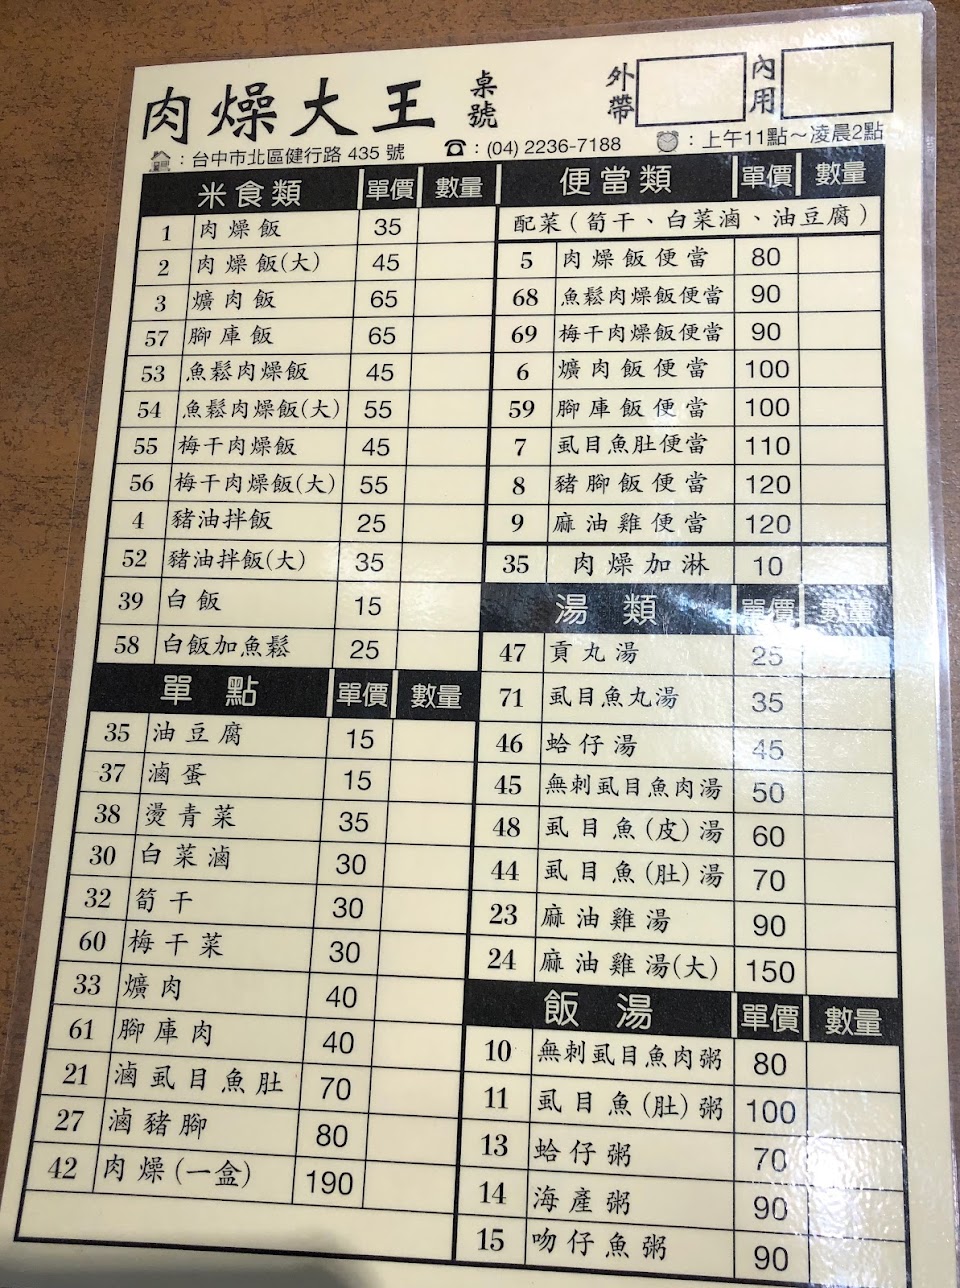 肉燥大王 桌號 外帶 內用
：台中市北區健行路 435 號 ：(04) 2236-7188 ：上午11點～凌晨2點
米食類 單價 數量
1 肉燥飯 35
2 肉燥飯(大) 45
3 爌肉飯 65
57 腳庫飯 65
53 魚鬆肉燥飯 45
54 魚鬆肉燥飯(大) 55
55 梅干肉燥飯 45
56 梅干肉燥飯(大) 55
4 豬油拌飯 25
52 豬油拌飯(大) 35
39 白飯 15
58 白飯加魚鬆 25
單點 單價 數量
35 油豆腐 15
37 滷蛋 15
38 燙青菜 35
30 白菜滷 30
32 筍干 30
60 梅干菜 30
33 爌肉 40
61 腳庫肉 40
21 滷虱目魚肚 70
27 滷豬腳 80
42 肉燥(一盒) 190
便當類 單價 數量
配菜(筍干、白菜滷、油豆腐)
5 肉燥飯便當 80
68 魚鬆肉燥飯便當 90
69 梅干肉燥飯便當 90
6 爌肉飯便當 100
59 腳庫飯便當 100
7 虱目魚肚便當 110
8 豬腳飯便當 120
9 麻油雞便當 120
35 肉燥加淋 10
湯類 單價 數量
47 貢丸湯 25
71 虱目魚丸湯 35
46 蛤仔湯 45
45 無刺虱目魚肉湯 50
48 虱目魚(皮)湯 60
44 虱目魚(肚)湯 70
23 麻油雞湯 90
24 麻油雞湯(大) 150
飯湯 單價 數量
10 無刺虱目魚肉粥 80
11 虱目魚(肚)粥 100
13 蛤仔粥 70
14 海產粥 90
15 吻仔魚粥 90